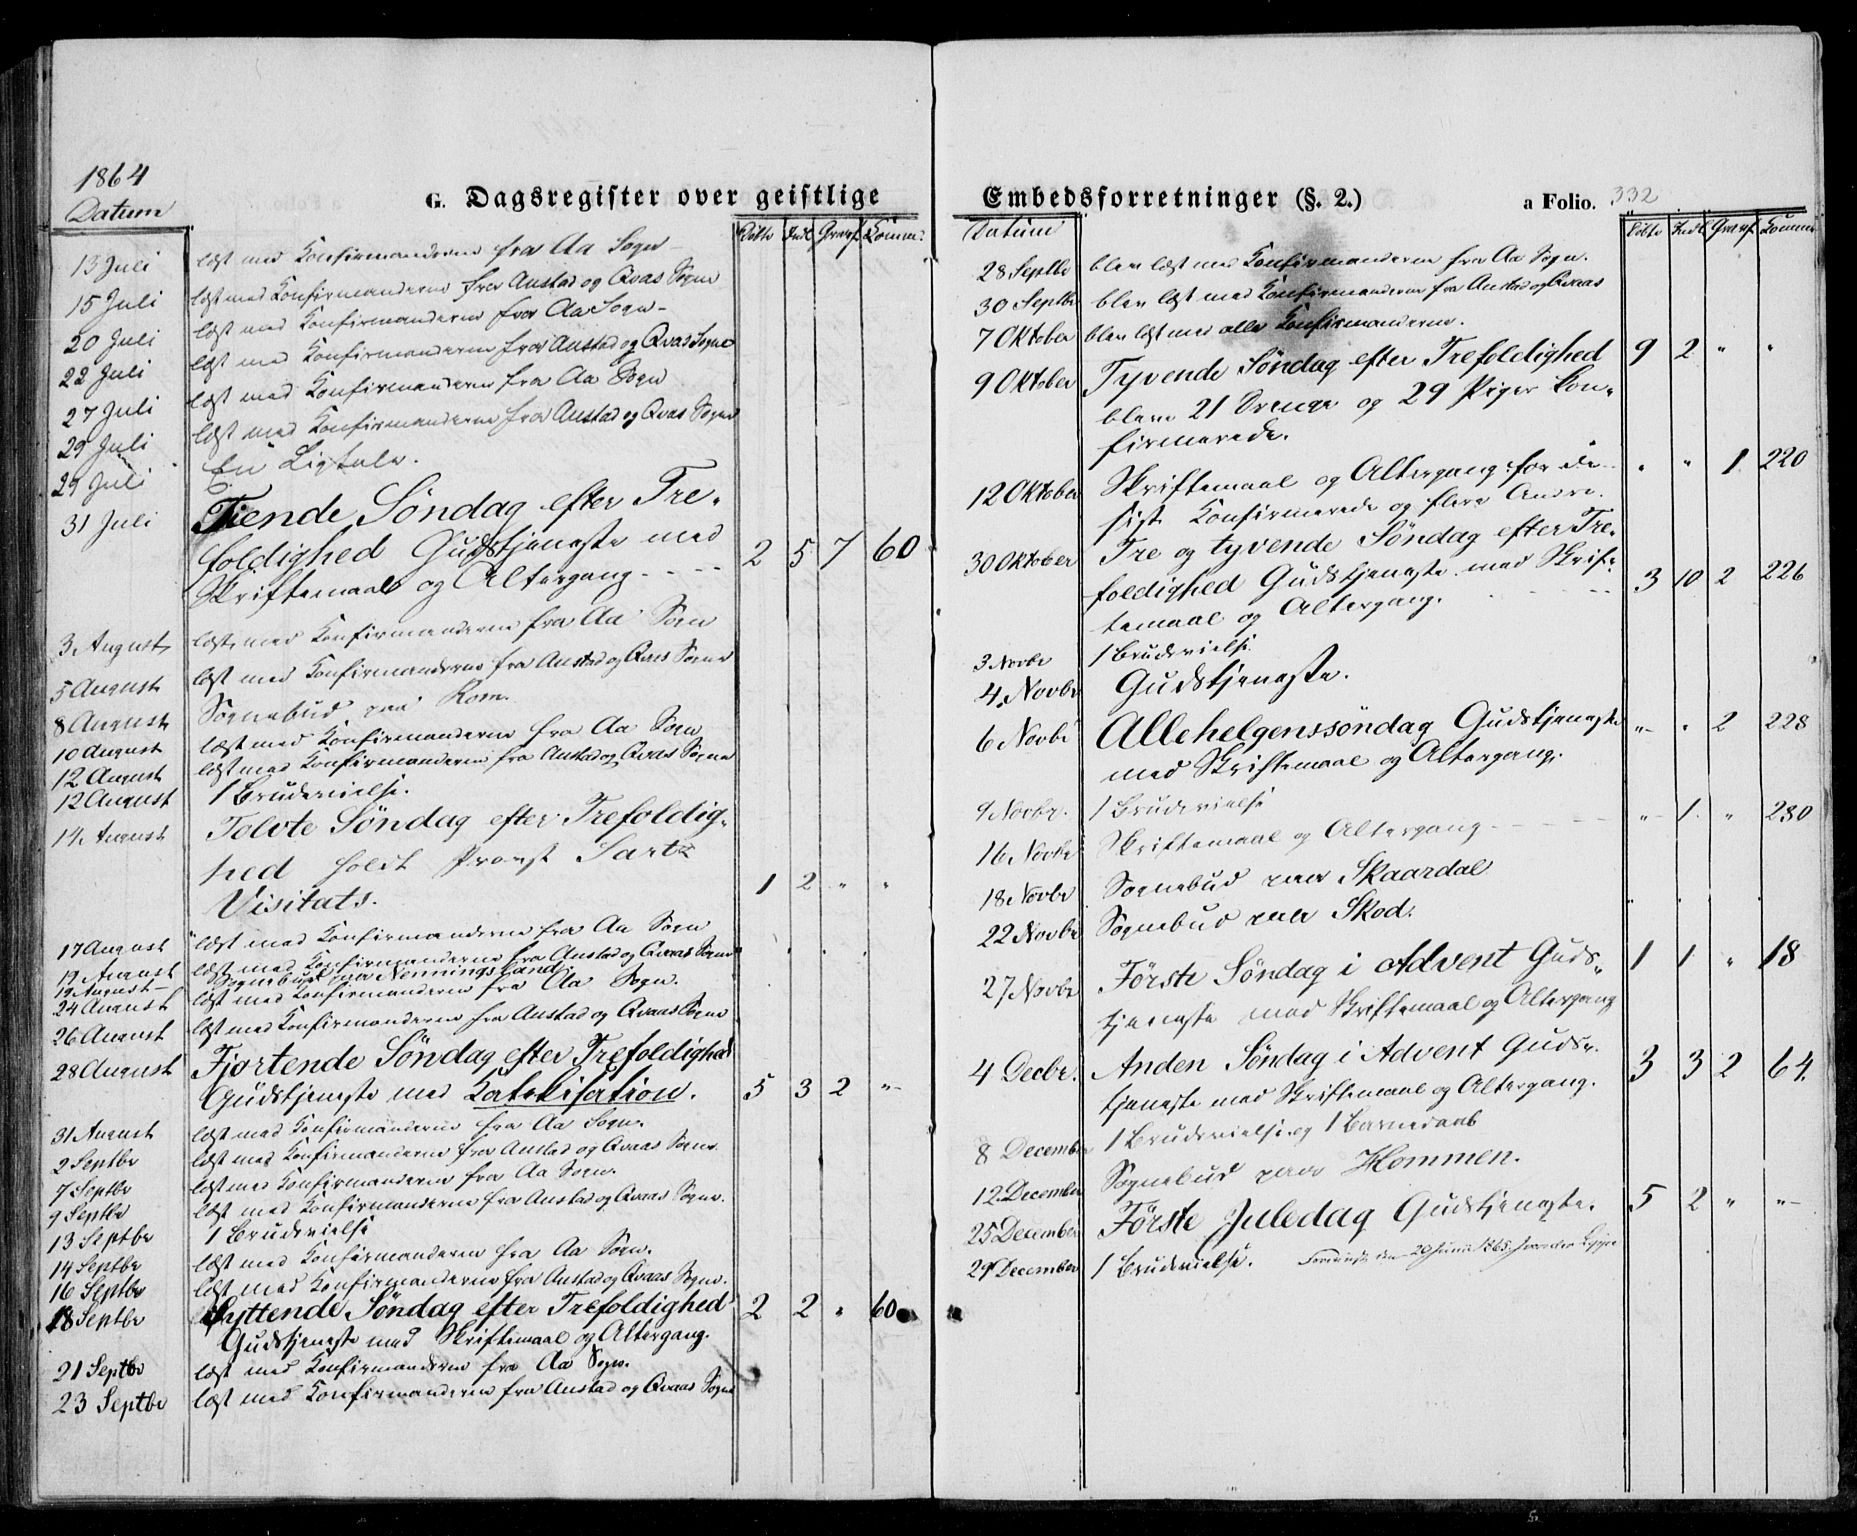 1864
G. Dagsregister over geistlige
Datum Døbte Indl Gravf. Commu:
13 Juli læst med Konfirmanderne fra Aa Sogn
15 Juli læst med Konfirmanderne fra Austad og Qvas Sogne
20 Juli læst med Konfirmanderne fra Aa Sogn
22 Juli læst med Konfirmanderne fra Austad og Qvas Sogne
27 Juli læst med Konfirmanderne fra Aa Sogn
29 Juli læst med Konfirmanderne fra Austad og Qvas Sogne
29 Juli En Ligtale.
31 Juli Tiende Søndag efter Tre-
foldighed Gudstjeneste med 2 5 7 60
Skriftemaal og Altergang
3 August læst med Konfirmanderne fra Aa Sogn
5 August læst med Konfirmanderne fra Austad og Qvas Sogne
8 August Sognebud paa Rom.
10 August læst med Konfirmanderne fra Aa Sogn
12 August læst med Konfirmanderne fra Austad og Qvas Sogne
12 August 1 Brudevielse.
14 August Tolvte Søndag efter Trefoldig-
hed holdt Provst Sartz
Visitats. 1 2 " "
17 August læst med Konfirmanderne fra Aa Sogn
19 August læst med Konfirmanderne fra Austad og Qvaas Sogne
19 August Sognebud paa Nenningsland
24 August læst med Konfirmanderne fra Aa Sogn.
26 August læst med Konfirmanderne fra Austad og Qvaas Sogne
28 August Fjortende Søndag efter Trefoldighed
Gudstjeneste med Katekisation. 5 3 2 "
31 August læst med Konfirmanderne fra Aa Sogn.
2 Septbr læst med Konfirmanderne fra Austad og Qvaas Sogne
7 Septbr læst med Konfirmanderne fra Aa Sogn.
9 Septbr læst med Konfirmanderne fra Austad og Qvaas Sogne.
13 Septbr 1 Brudevielse
14 Septbr læst med Konfirmanderne fra Aa Sogn.
16 Septbr læst med Konfirmanderne fra Austad og Qvaas Sogne.
18 Septbr Syttende Søndag efter Trefoldighed 2 2 " 60
Gudstjeneste med Skriftemaal og Altergang.
21 Septbr læst med Konfirmanderne fra Aa Sogn.
23 Septbr læst med Konfirmanderne fra Austad og Qvaas Sogne
Embedsforretninger (§. 2.) a Folio. 332
Datum Døbte Indl Gravf Commu
28 Septbr blev læst med Konfirmanderne fra Aa Sogn.
30 Septbr blev læst med Konfirmanderne fra Austad og Qvaas
7 Oktober blev læst med alle Konfirmanderne.
9 Oktober Tyvende Søndag efter Trefoldighed 9 2 " "
bleve 21 Drenge og 29 Piger kon-
firmerede.
12 Oktober Skriftemaal og Altergang for de " " 1 220
sidst Konfirmerede og flere Andre.
30 Oktober Tre og tyvende Søndag efter Tre-
foldighed Gudstjeneste med Skrif- 3 10 2 226
temaal og Altergang.
3 Novbr 1 Brudevielse.
4 Novbr Gudstjeneste.
6 Novbr Allehelgenssøndag Gudstjeneste " " 2 228
med Skriftemaal og Altergang.
9 Novbr. 1 Brudevielse
16 Novbr Skriftemaal og Altergang " 1 " 230
18 Novbr Sognebud paa Skaardal
22 Novbr Sognebud paa Skod.
27 Novbr Første Søndag i Advent Guds- 1 1 " 18
tjeneste med Skriftemaal og Altergang
4 Decbr. Anden Søndag i Advent Guds- 3 3 2 64.
tjeneste med Skriftemaal og Altergang.
8 December 1 Brudevielse og 1 Barnedaab
12 December Sognebud paa Hommen.
25 December Første Juledag Gudstjeneste. 5 2 " "
29 December 1 Brudevielse. den 20 Juni 1865.